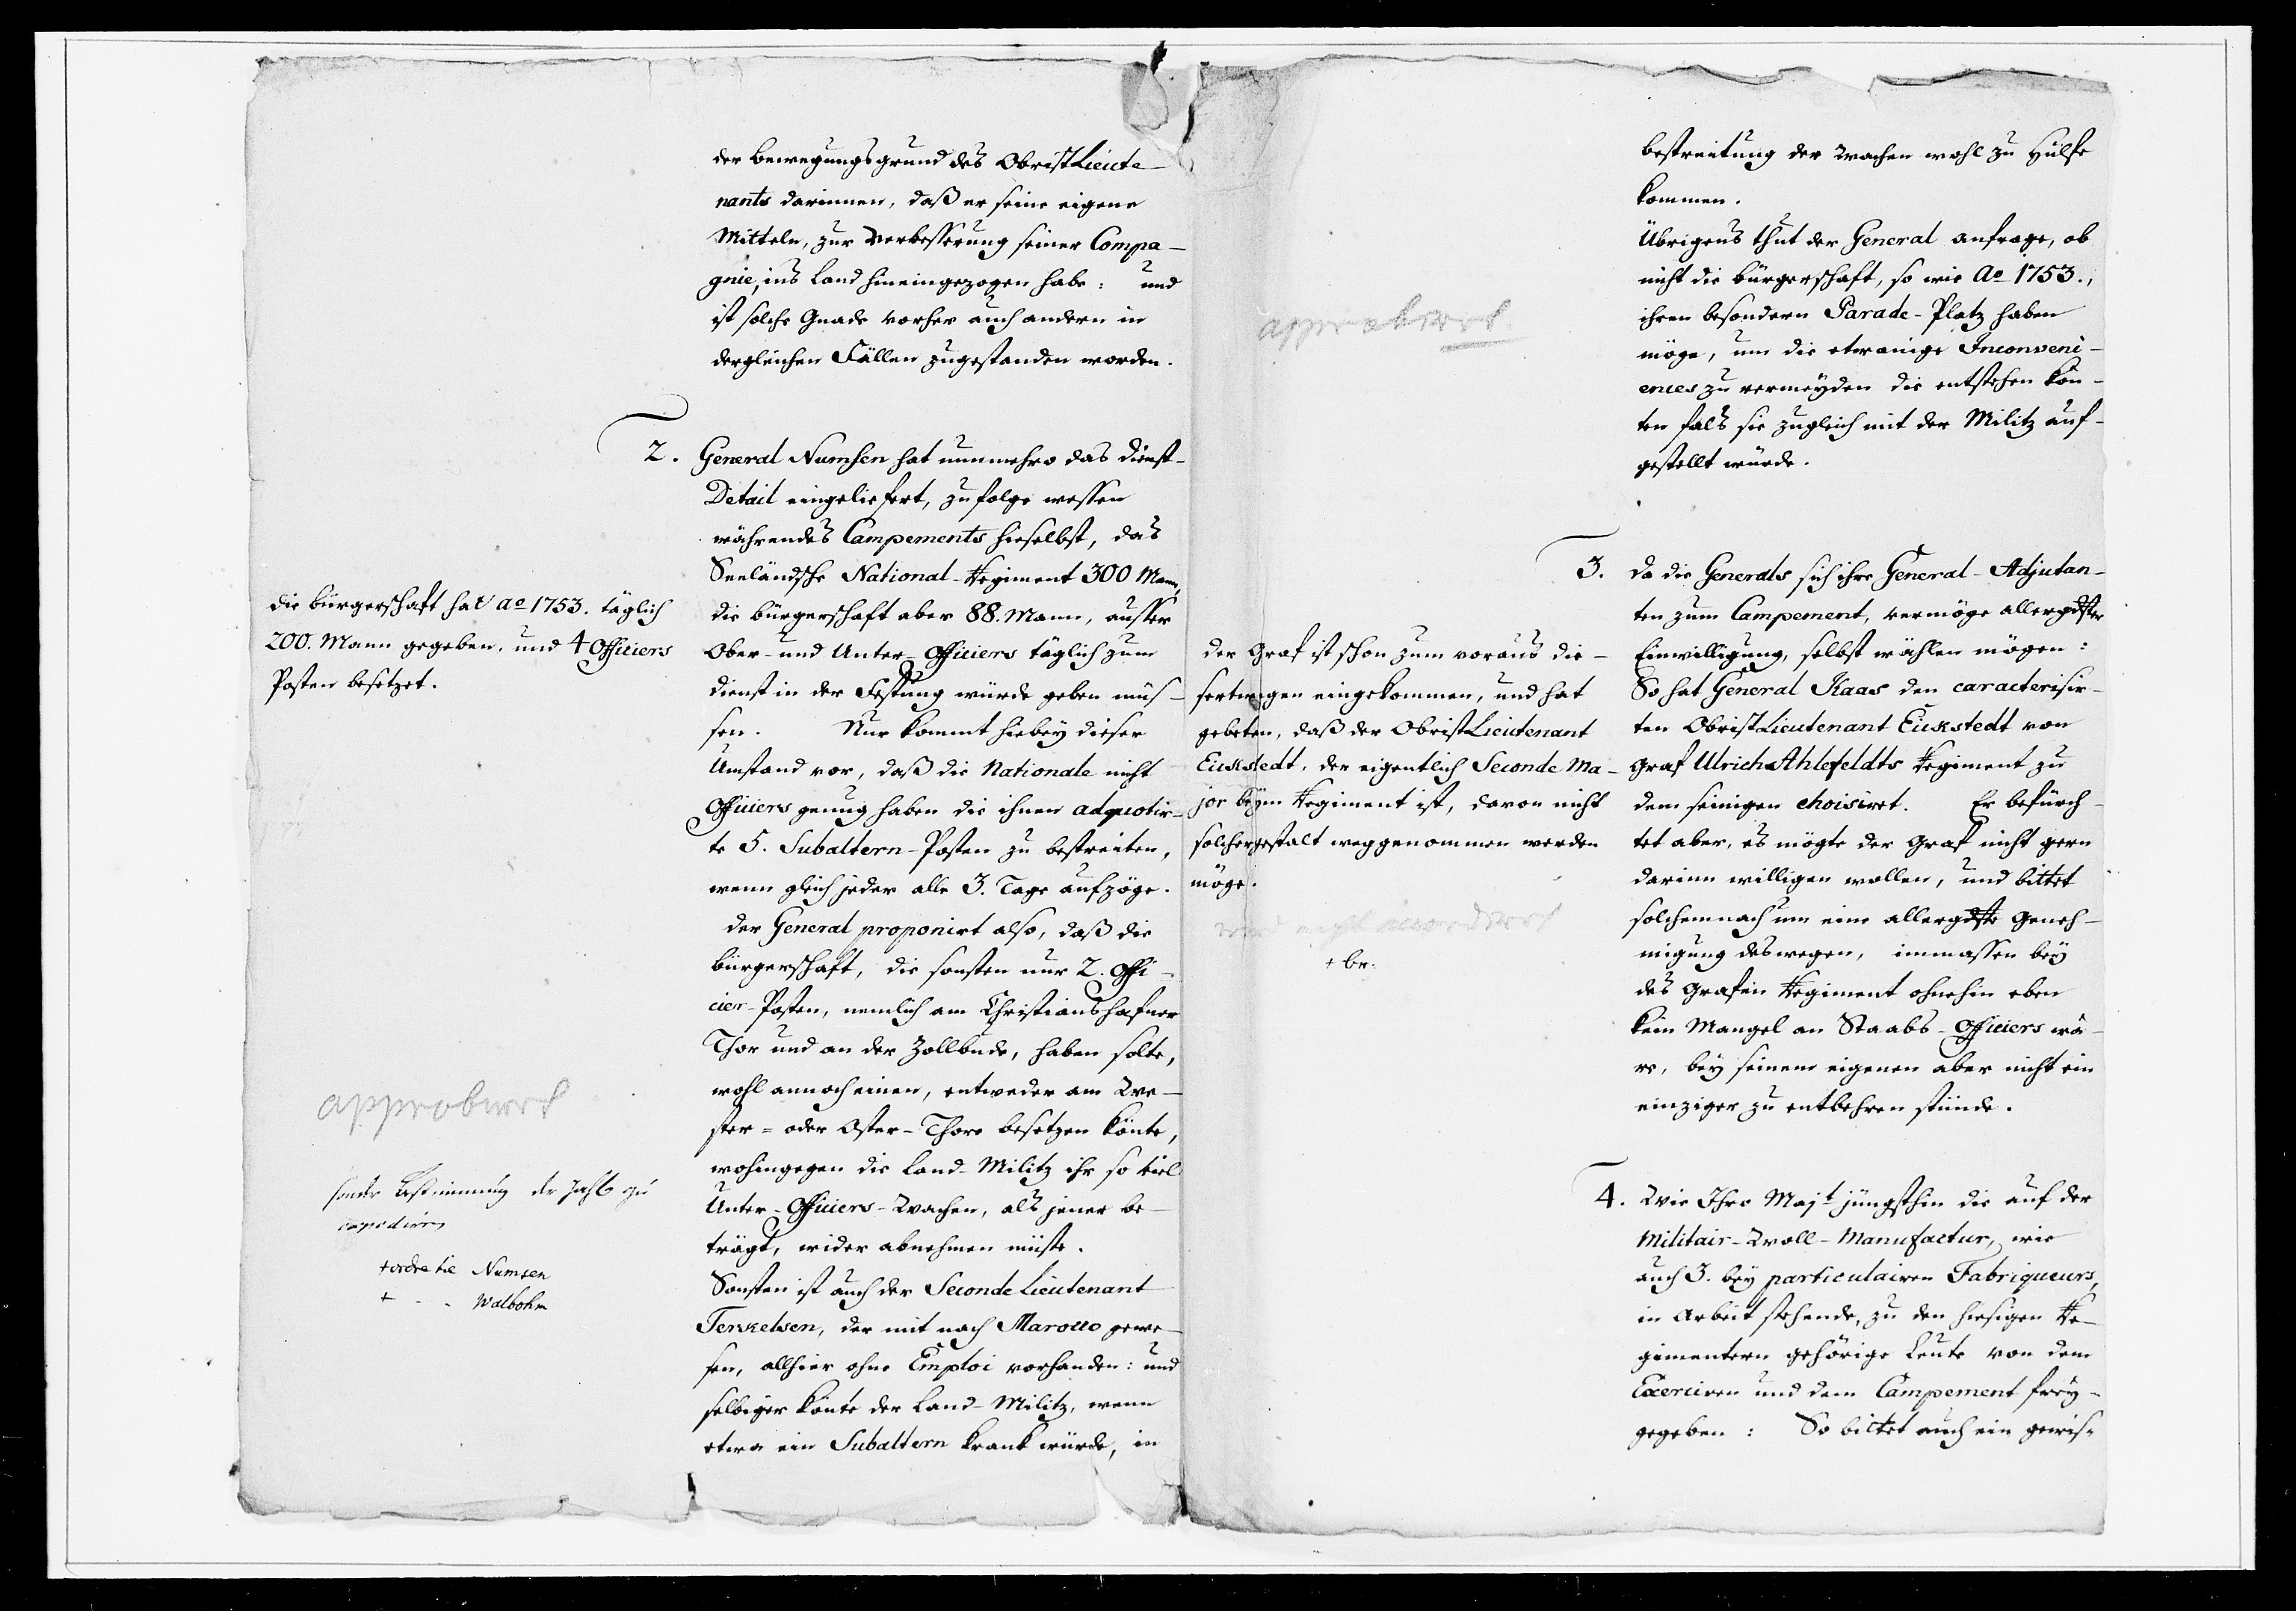 der Bewegungsgrund des ObristLieute-
nants darinnen, daß er seine eigene
Mitteln, zur Verbesserung seiner Compa-
gnie, ins Land hineingezogen habe: und
ist solche Gnade vorher auch andern in
dergleichen Fällen zugestanden worden.
2. General Numsen hat nunmehro das Dienst-
Detail eingeliefert, zufolge wessen
währendes Campements hieselbst, das
Seeländsche National-Regiment 300 Mann,
die Bürgerschaft aber 88. Mann, ausser
Ober- und Unter-Officiers täglich zum
Dienst in der Festung würde geben müs-
sen. Nur kommt hiebey dieser
Umstand vor, daß die Nationale nicht
Officiers genug haben die ihnen adquotir-
te 5. Subaltern-Posten zu bestreiten,
wenn gleich jeder alle 3. Tage aufzöge.
Der General proponirt also, daß die
Bürgerschaft, die sonsten nur 2. Offi-
cier-Posten, nemlich am Christianshafner
Thor und an der Zollbude, haben solte,
wohl annoch einen, entweder am We-
ster- oder Oster-Thore besetzen könte,
wohingegen die Land-Militz ihr so viel
Unter-Officiers-Wachen, als jener be-
trägt, wider abnehmen müste.
Sonsten ist auch der Seconde Lieutenant
Terkelsen, der mit nach Marocco gewe-
sen, allhier ohne Emploi vorhanden: und
selbiger könte der Land-Militz, wenn
etwa ein Subaltern krank würde, in
die Bürgerschaft hat ao 1753. täglich
200. Mann gegeben, und 4 Officiers
Posten besetzet.
approbiret
sonder Bestimmung der Zahl zu
expedieren
+ ordre til Numsen
+ - - Walbohm
bestreitung der Wachen wohl zu Hülfe
kommen.
Übrigens thut der General anfrage, ob
nicht die Bürgerschaft, so wie Ao 1753.,
ihren besondern Parade-Platz haben
möge, um die etwanige Inconveni-
ences zu vermeyden die entstehen kön-
ten fals sie zugleich mit der Militz auf-
gestellt würde.
approbiret.
3. Da die Generals sich ihre General-Adjutan-
ten zum Campement, vermöge allergdster
Einwilligung, selbst wählen mögen:
So hat General Kaas den caracterisir-
ten ObristLieutenant Eickstedt von
Graf Ulrich Ahlefeldts Regiment zu
dem seinigen choisiret. Er befürch-
tet aber, es mögte der Graf nicht gern
darinn willigen wollen, und bittet
solchemnach um eine allergdste Geneh-
migung deswegen, immassen bey
des Grafen Regiment ohnehin eben
kein Mangel an Staabs-Officiers wä-
re, bey seinem eigenen aber nicht ein
einziger zu entbehren stünde.
Der Graf ist schon zum voraus die-
sertwegen eingekommen, und hat
gebeten, daß der ObristLieutenant
Eickstedt, der eigentlich Seconde Ma-
jor beym Regiment ist, davon nicht
solchergestalt weggenommen werden
möge.
wird nicht accordiret
+ br.
4. Wie Ihro Majt jüngsthin die auf der
Militair-Woll-Manufactur, wie
auch 3. bey particulairen Fabriqueurs,
in Arbeit stehende, zu den hiesigen Re-
gimentern gehörige Leute von dem
Exerciren und dem Campement frey-
gegeben: So bittet auch ein gewis-